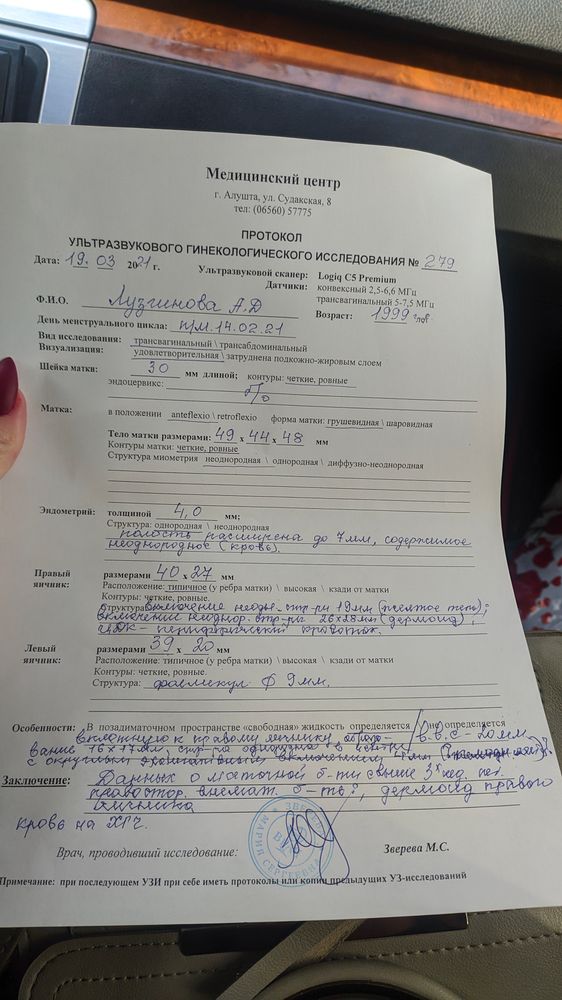 Медицинский центр
г. Алушта, ул. Судакская, 8
тел: (06560) 57775
ПРОТОКОЛ
УЛЬТРАЗВУКОВОГО ГИНЕКОЛОГИЧЕСКОГО ИССЛЕДОВАНИЯ № 279
Дата: 19.03 2021 г. Ультразвуковой сканер: Logiq C5 Premium
Датчики: конвексный 2,5-6,6 МГц
трансвагинальный 5-7,5 МГц
Ф.И.О. Лузгинова А.Д Возраст: 1999
День менструального цикла: п/м.14.02.21
Вид исследования: трансвагинальный \ трансабдоминальный
Визуализация: удовлетворительная \ затруднена подкожно-жировым слоем
Шейка матки: 30 мм длиной; контуры: четкие, ровные
эндоцервикс: б/о
Матка: в положении anteflexio \ retroflexio форма матки: грушевидная \ шаровидная
Тело матки размерами: 49 x 44 x 48 мм
Контуры матки: четкие, ровные
Структура миометрия неоднородная \ однородная \ диффузно-неоднородная
Эндометрий: толщиной 4,0 мм;
Структура: однородная \ неоднородная
полость расширена до 7мм, содержимое
неоднородное (кровь).
Правый яичник: размерами 40 x 27 мм
Расположение: типичное (у ребра матки) \ высокая \ кзади от матки
Контуры: четкие, ровные.
Структура: включение неодн. стр-ры 19мм (желтое тело);
включение неоднор. стр-ры 26х28мм (дермоид);
ЦДК - периферический кровоток.
Левый яичник: размерами 39 x 20 мм
Расположение: типичное (у ребра матки) \ высокая \ кзади от матки
Контуры: четкие, ровные.
Структура: фолликул Ф 9мм.
Особенности: В позадиматочном пространстве «свободная» жидкость определяется / не определяется
вплотную к правому яичнику образо- в.в.с - 20мм
вание 16х17мм, стр-ра однородна в центре
с округлым включением 4мм
Заключение: Данных о маточной б-ти свыше 3х нед. нет.
правостор. внемат. б-ть?, дермоид правого
яичника
кровь на ХГЧ.
ЗВЕРЕВА МАРИЯ СЕРГЕЕВНА
Врач, проводивший исследование: Зверева М.С.
Примечание: при последующем УЗИ при себе иметь протоколы или копии предыдущих УЗ-исследований